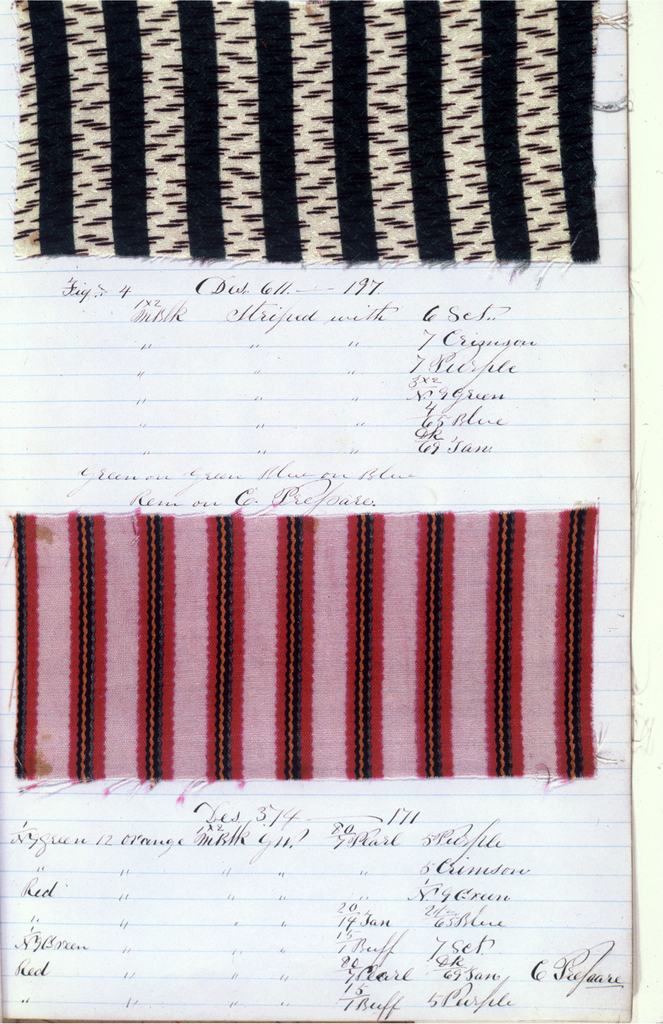 Fig. 4 Des. 611 — 197
1x2
M Blk Striped with 6 Sct.
" " " 7 Crimson
" " " 7 Purple
3x2
" " " No 9 Green
4
" " " 65 Blue
DK
" " " 69 Tan
Green on Green Blue on Blue
Rem on C. Prepare.
Des 374 — 171
1 1x2 80
No 9 Green 12 Orange M Blk Gn. 7 Pearl 5 Purple
" " " " " 5 Crimson
1
Red " " " " No 9 Green
20
" " " " 14 Tan 65 Blue
1 15
No 9 Green " " " 1 Buff 7 Sct
80 DK
Red " " " 7 Pearl 69 Tan C Prepare
15
" " " " 1 Buff 5 Purple